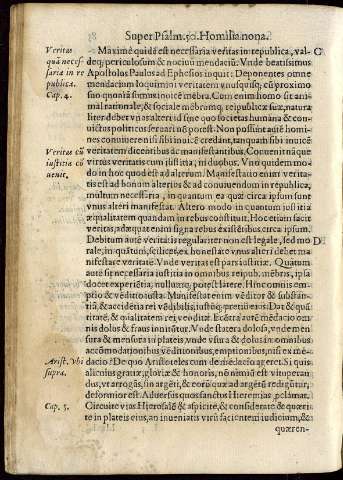 Super Psalm.50.Homilia nona.
Veritas quã necessaria in republica. Cap. 4.
Veritas cũ iustitia cõuenit.
Arist. vbi supra.
Cap. 5.
Maximè quidẽ est necessaria veritas in republica, val- C
deq; periculosum & nociuũ mendaciũ. Vnde beatissimus
Apostolus Paulus ad Ephesios inquit: Deponentes omne
mendacium loquimini veritatem vnusquisq; cũ proximo
suo quoniã sumus inuicẽ mẽbra. Cum enim homo sit ani-
mal rationale, & sociale mẽbrumq; reipublicæ suæ, natura
liter debet vnus alteri id sine quo societas humana & con-
uictus politicus seruari nõ potest. Non possunt autẽ homi-
nes conuiuere nisi sibi inuicẽ credant, tanquã sibi inuicẽ
veritatem dicentibus ac manifestantibus. Conuenit nãque
virtus veritatis cum iustitia, in duobus. Vno quidem mo-
do in hoc quod est ad alterum. Manifestatio enim verita-
tis est ad bonum alterius & ad conuiuendum in republica,
multum necessaria, in quantum ea quæ circa ipsum sunt
vnus alteri manifestat. Altero modo in quantum iustitia
æqualitatem quandam in rebus constituit. Hoc etiam facit
veritas, adæquat enim signa rebus existẽtibus circa ipsum.
Debitum autẽ veritatis regulariter non est legale, sed mo D
rale, in quãtum, scilicet, ex honestate vnus alteri debet ma
nifestare veritatẽ. Vnde veritas est pars iustitiæ. Quãtum
autẽ sit necessaria iustitia in omnibus reipub. mẽbris, ipsa
docet experiẽtia, nullumq; potest latere. Hinc omnis em-
ptio & vẽditio iusta. Manifestat enim vẽditor & substan-
tiã, & accidẽtia rei vẽdibilis, iustũq; pretiũ eius. Dat & quã
titatẽ, & qualitatem rei venditæ. Ex cõtra autẽ mẽdacio om
nis dolus & fraus innititur. Vnde statera dolosa, vnde men
sura & mensura in plateis, vnde vsura & dolus in omnibus
accõmodationibus vẽditionibus, emptionibus, nisi ex mẽ
dacio? De quo Aristoteles cum de mẽdacio ageret. Si quis
alicuius gratia, gloriæ & honoris, nõ nẽmiũ est vituperan
dus, vt arrogãs, sin argẽti, & eorũ quæ ad argẽtũ redigũtur,
deformior est. Aduersus quos sanctus Hieremias, pclamat.
Circuite vias Hierosalẽ & aspicite, & considerate & quæri-
te in plateis eius, an inueniatis virũ facientem iudicium, &
quæren-